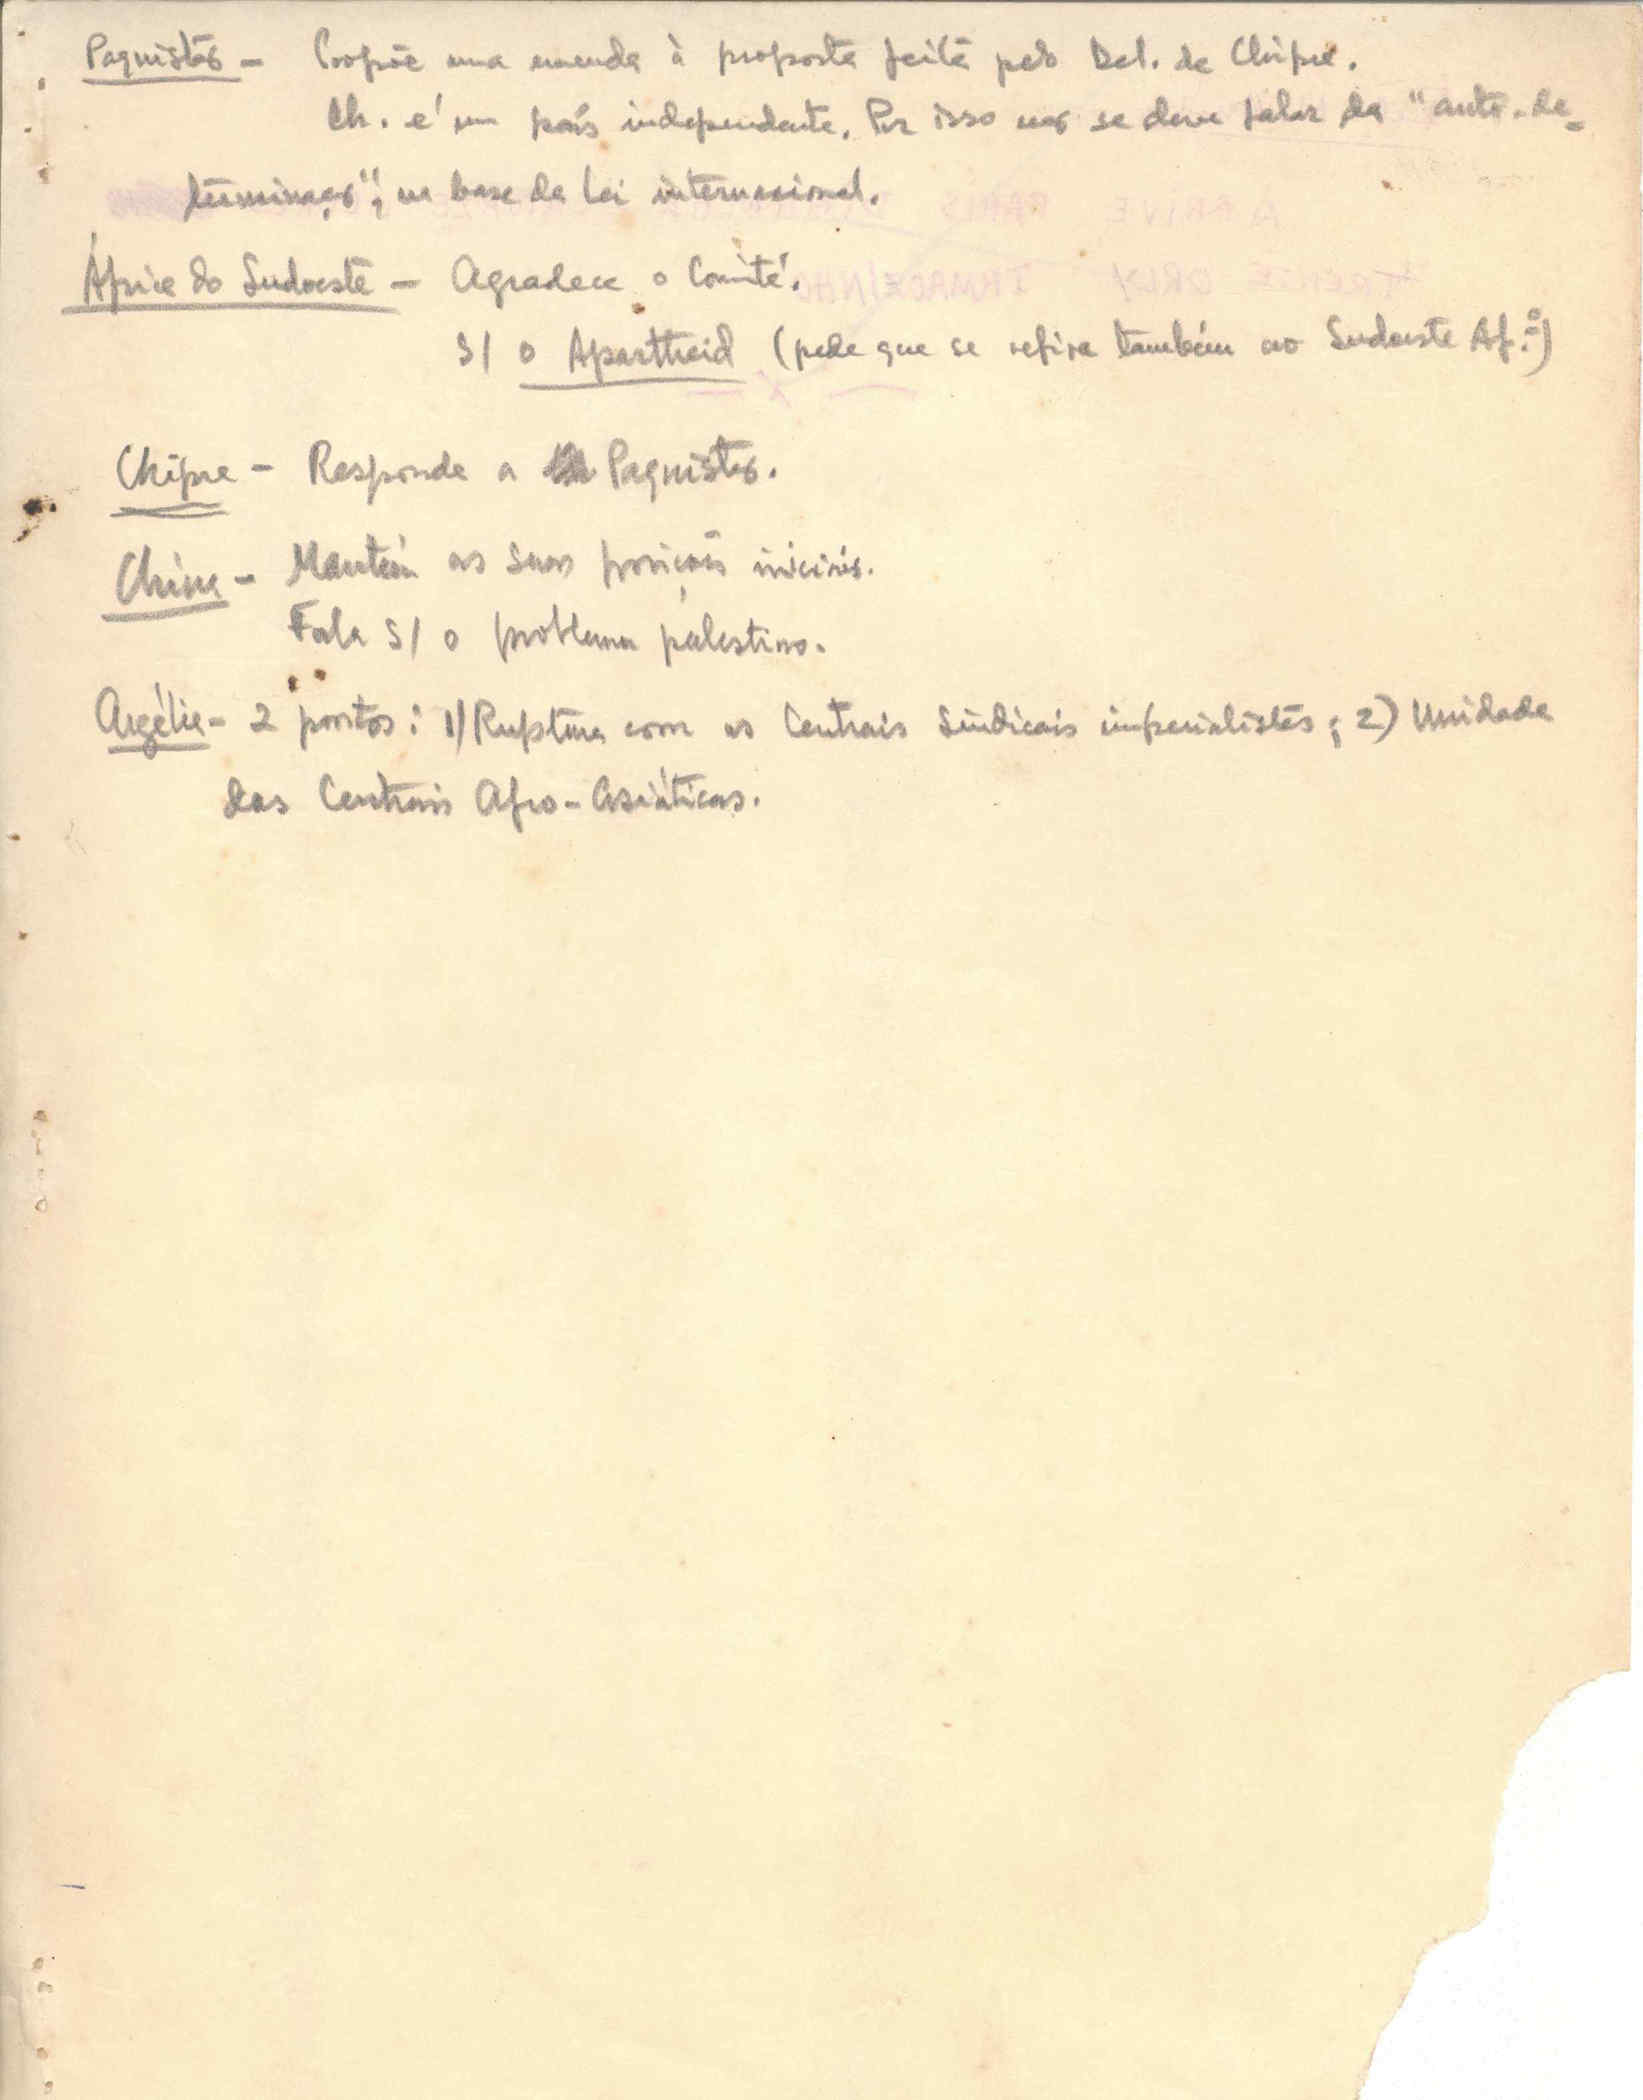 Paquistão – Propõe uma emenda à proposta feita pelo Del. de Chipre.
Ch. é um país independente. Por isso não se deve falar da "auto-de-
terminação", na base da lei internacional.
África do Sudoeste – Agradece o Comité.
S/ o Apartheid (pede que se refira também ao Sudoeste Af.º)
Chipre – Responde a Paquistão.
China – Mantém as suas posições iniciais.
Fala S/ o problema palestino.
Argélia – 2 pontos: 1) Ruptura com as Centrais Sindicais imperialistas; 2) Unidade
das Centrais Afro-Asiáticas.